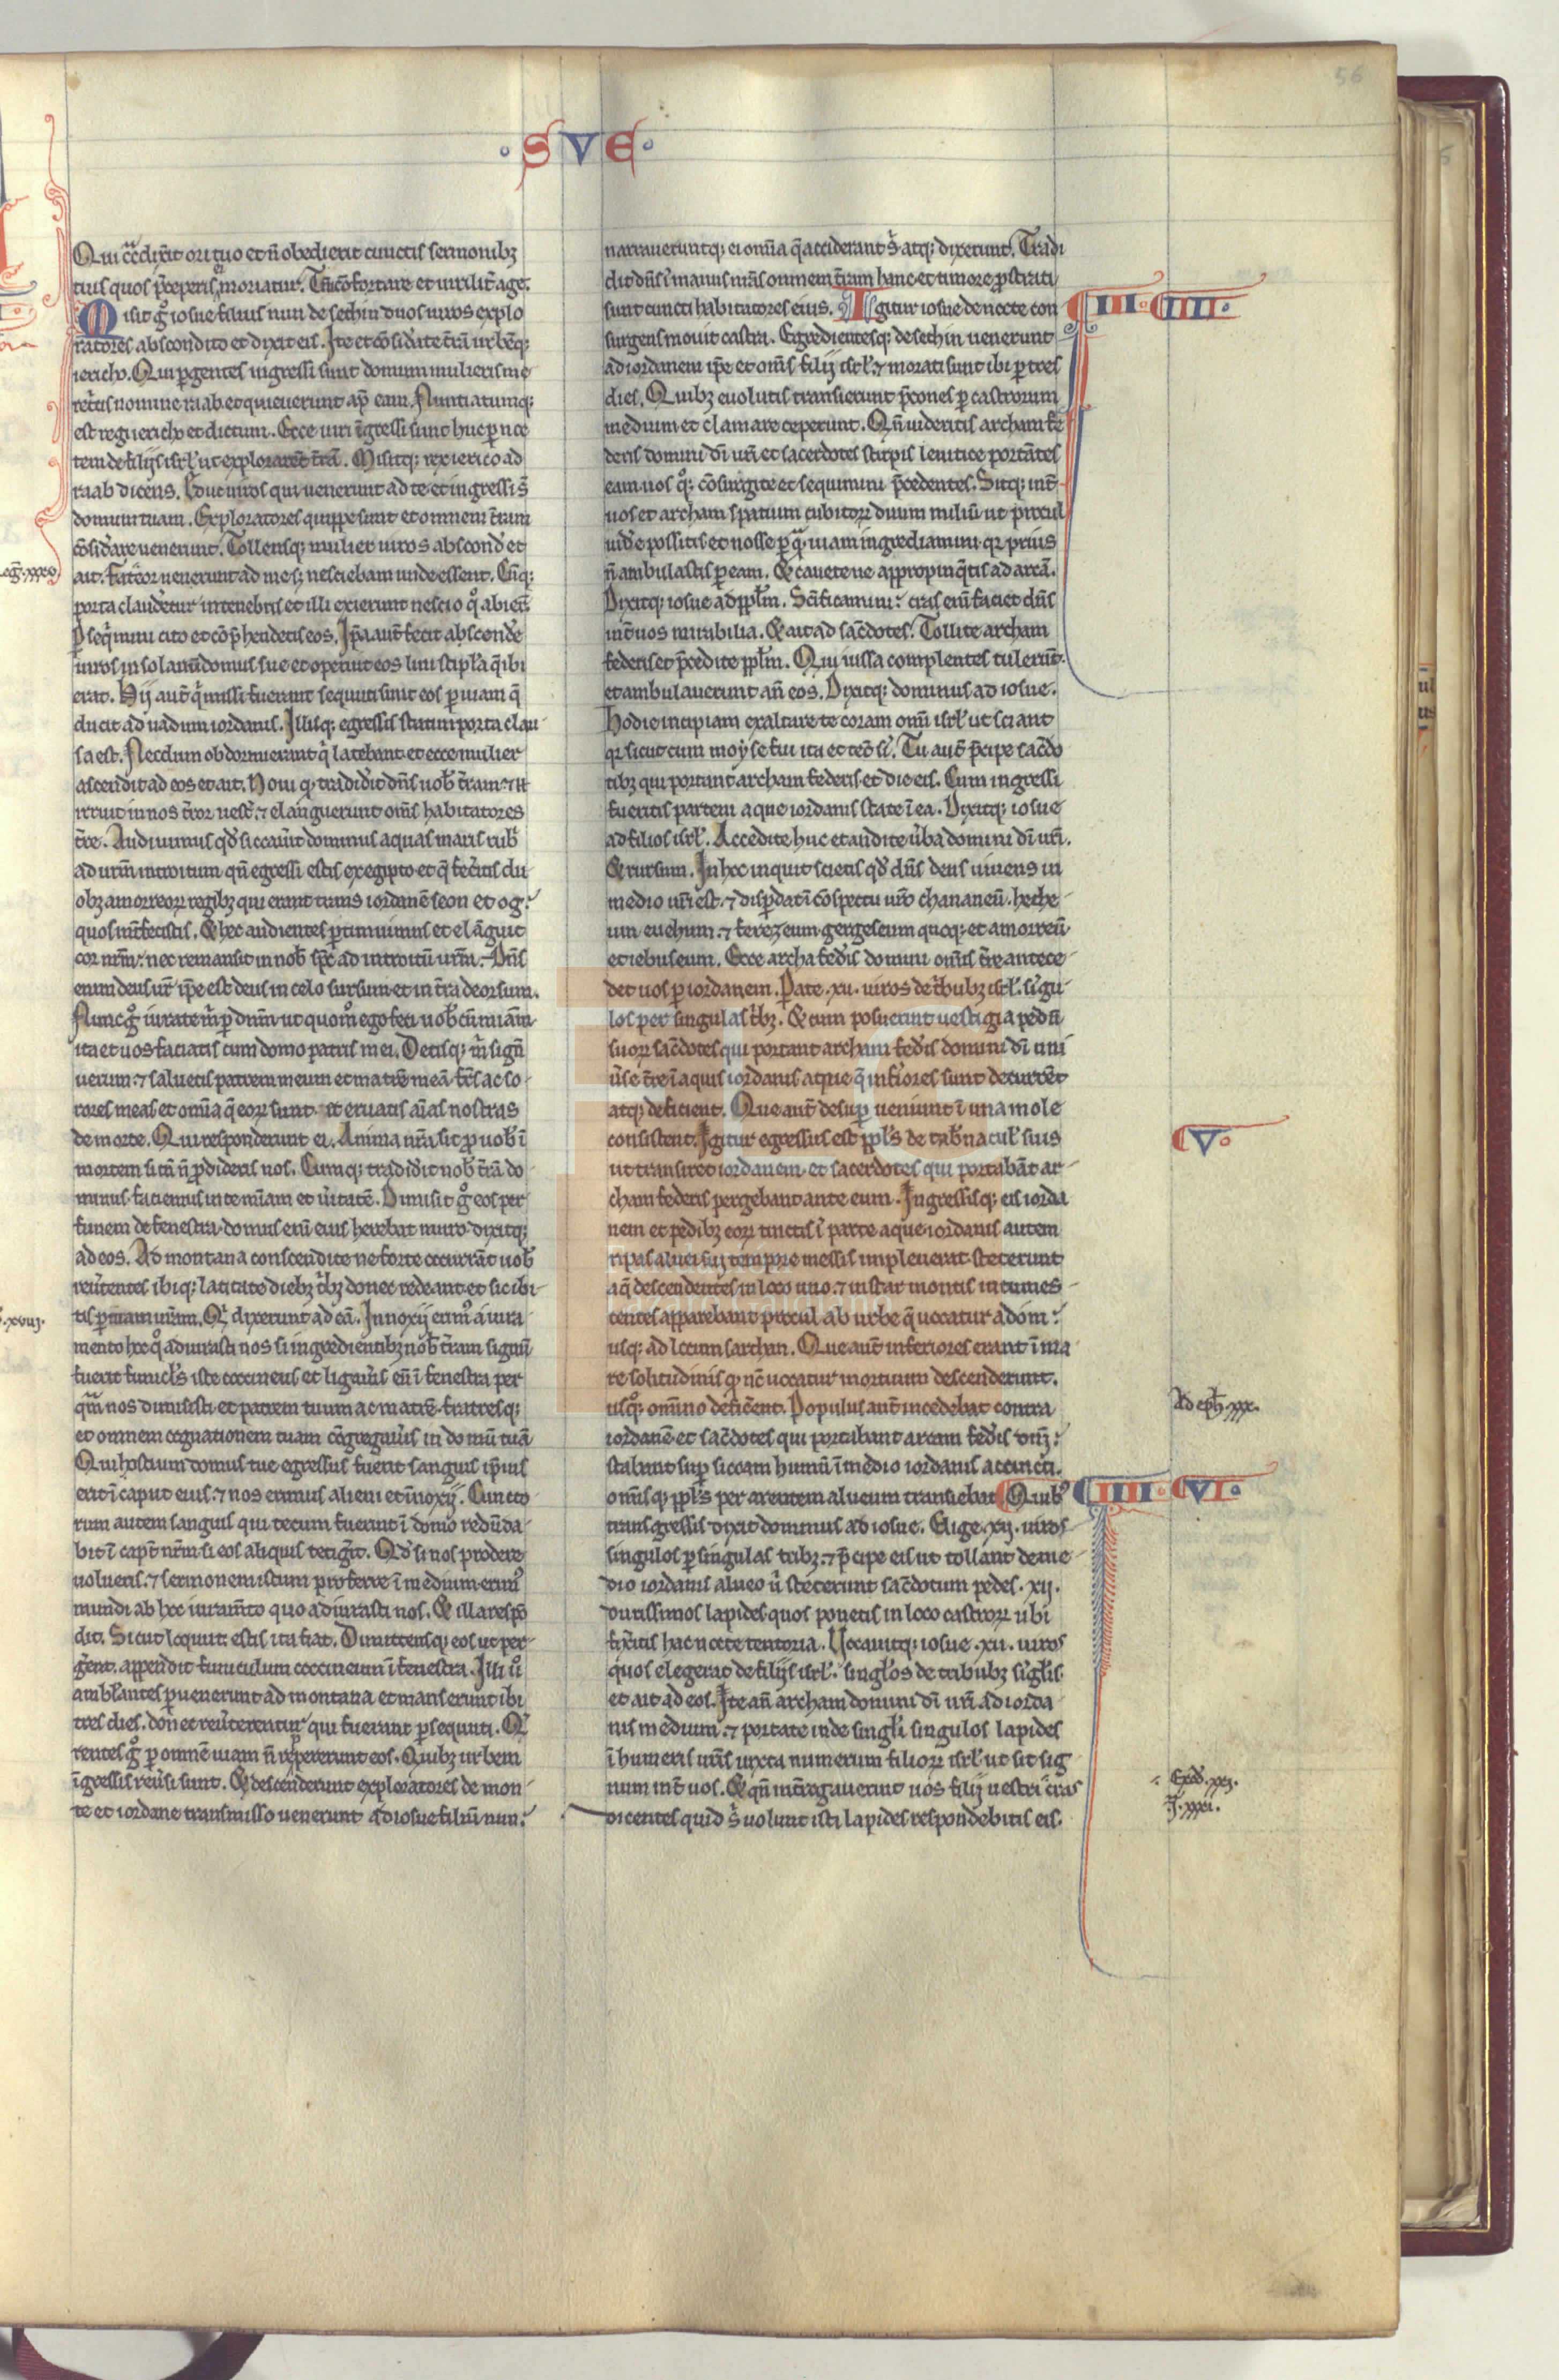 56
· S V E ·
Qui cͣdix̾it ori tuo et ñ obedierit cunctis sermonibꝫ
tuis quos p̄ceperis moriatur. Tu cōfortare et uirilit̄ age.
Misit gͦ iosue filius nun de sechin duos uiros explo
ratores abscondito et dixit eis. Ite et cōsid̾ate t̄rā urbēqꝫ
iericho. Qui ꝑgentes ingressi sunt domum mulieris me
ret̾cis nomine raab et quieuerunt ap̄ eam. Nuntiatumqꝫ
est regi iericho et dictum. Ecce uiri īgressi sunt huc ꝑ noc
tem de filijs isrl̾ ut explorarēt t̄rā. Misitqꝫ rex ierico ad
raab dicens. Educ uiros qui uenerunt ad te et ingressi s̄
domum tuam. Exploratores quippe sunt et omnem t̄ram
cōsid̾are uenerunt. Tollensqꝫ mulier uiros abscond̾ et
ait. Fateor uenerunt ad me sꝫ nesciebam unde essent. Cūqꝫ
porta claud̾etur in tenebris et illi exierunt nescio qͦ abierūt
ꝑseqͥmini cito et cōp̄hendetis eos. Ip̄a aut̄ fecit ascend̾e
uiros in solariū domus sue et operuit eos lini stipl̾a q̄ ibi
erat. Hij aut̄ qͥ missi fuerant sequuti sunt eos ꝑ uiam q̄
ducit ad uadum iordanis. Illisqꝫ egressis statim porta clau
sa est. Necdum obdormierant qͥ latebant et ecce mulier
ascendit ad eos et ait. Noui qꝫ tradid̾it dn̄s uob̾ t̄ram ⁊ et̾
irruit in nos t̄ror uest̾ ⁊ elanguerunt om̄s habitatores
t̄re. Audiuimus qd̾ siccau̾it dominus aquas maris rub̾
ad ur̄m introitum qn̄ egressi estis ex egipto et q̄ fec̾itis du
obꝫ amorreoꝝ regibꝫ qui erant trans iordanē seon et og.
quos int̾fecistis. Et hec audientes ꝑtimuimus et elāguit
cor nr̄m nec remansit in nob̾ sp̄c ad introitū ur̄m. Dn̄s
enim deus ur̄ ip̄e est deus in celo sursum et in t̄ra deorsum.
Nunc gͦ iurate m̄ ꝑ dnm̄ ut quomͦ ego feci uob̾cū miāmͦ
ita et uos faciatis cum domo patris mei. Detisqꝫ m̄ signū
uerum ⁊ saluetis patrem meum et matrē meā fr̄s ac so
rores meas et om̄ia q̄ eoꝝ sunt et eruatis aīas nostras
de morte. Qui responderunt ei. Anima nr̄a sit pro uob̾ ī
mortem si tn̄ ñ prodideris nos. Cumqꝫ tradid̾it nob̾ t̄rā do
minus faciemus in te miāmͦ et u̾itatē. Dimisit gͦ eos per
funem de fenestra domus eni̾ eius herebat muro dixitqꝫ
ad eos. Ad montana conscendite ne forte occurrāt uob̾
reu̾tentes ibiqꝫ latitate diebꝫ t̾bꝫ donec redeant et sic ibi
tis ꝑ uiam ur̄am. Qͥ dixerunt ad eā. Innoxij erimͦ a iura
mento hoc qͦ adiurasti nos si ingredientibꝫ nob̾ t̄ram signū
fuerit funicl̾s iste coccineus et ligau̾is eū ī fenestra per
qͣm nos dimisisti et patrem tuum ac matrē fratresqꝫ
et omnem cognationem tuam cōgregau̾is in domū tuā
Qui hostium domus tue egressus fuerit sanguis ip̄ius
erit ī caput eius ⁊ nos erimus alieni et īnoxij. Cuncto
rum autem sanguis qui tecum fuerint ī domo redūda
bit ī capt̄ nr̄m si eos aliquis tetig̾it. Qd̾ si nos prodere
uolueris ⁊ sermonem istum proferre ī medium erimͦ
mundi ab hoc iuram̄to quo adiurasti nos. Et illa respō
dit. Sicut locuti estis ita fiat. Dimittensqꝫ eos ut per
g̾ent appendit funiculum coccineum ī fenestra. Illi uͦ
ambl̾antes ꝑuenerunt ad montana et manserunt ibi
tres dies. donec reu̾terentur qui fuerant ꝑsequuti. Qͥ
rentes gͦ ꝑ omnē uiam ñ reppererunt eos. Quibꝫ urbem
īgressis reu̾si sunt. Et descenderunt exploratores de mon
te et iordane transmisso uenerunt ad iosue filiū nun.
narraueruntqꝫ ei omīa q̄ acciderant s̄ atqꝫ dixerunt. Tradi
dit dn̄s ī manus nr̄as omnem t̄ram hanc et timore ꝓstrati
sunt cuncti habitatores eius. Igitur iosue de nocte con
surgens mouit castra. Egredientesqꝫ de sechin uenerunt
ad iordanem ip̄e et om̄s filij isrl̾ ⁊ morati sunt ibi ꝑ tres
dies. Quibꝫ euolutis transierunt p̄cones ꝑ castrorum
medium et clamare ceperunt. Qn̄ uideritis archam fe
deris domini dī ur̄i et sacerdotes stirpis leuitice portātes
eam uos qͦqꝫ cōsurgite et sequimini p̄cedentes. Sitqꝫ int̄
uos et archam spatium cubitoꝝ duum miliū ut procul
uid̾e possitis et nosse ꝑ qͣ uiam ingrediamini qꝛ prius
ñ ambulastis ꝑ eam. Et cauete ne appropinq̄tis ad arcā.
Dixitqꝫ iosue ad ppl̾m. Sc̄ificamini. cras enī faciet dn̄s
int̄ uos mirabilia. Et ait ad sac̄dotes. Tollite archam
federis et p̄cedite ppl̾m. Qui iussa complentes tulerūt
et ambulauerunt an̄ eos. Dixitqꝫ dominus ad iosue.
Hodie incipiam exaltare te coram omī isrl̾ ut sciant
qꝛ sicut cum moẏse fui ita et tecū sī. Tu aut̄ p̄cipe sac̄do
tibꝫ qui portant archam federis et dic eis. Cum ingressi
fueritis partem aque iordanis state ī ea. Dixitqꝫ iosue
ad filios isrl̾. Accedite huc et audite u̾ba domini dī ur̄i.
Et rursum. In hoc inquit scietis qd̾ dn̄s deus uiuens in
medio ur̄i est. ⁊ disꝑdat ī cōspectu ur̄o chananeū. hethe
um euehum. ⁊ ferezeum gergeseum quoqꝫ et amorreū
et iebuseum. Ecce archa fed̾is domini om̄is t̄re antece
det uos ꝑ iordanem. Parate .xii. uiros de t̾bubꝫ isrl̾. sīgu
los per singulas t̾bꝫ. Et cum posuerint uestigia pedū
suoꝝ sac̄dotes qui portant archam fed̾is domini dī uni
u̾se t̄re ī aquis iordanis aque q̄ inf̾iores sunt decurrēt
atqꝫ deficient. Que aut̄ desuꝑ ueniunt ī una mole
consistent. Igitur egressus est ppl̾s de tab̾nacul̾ suis
ut transiret iordanem et sacerdotes qui portabāt ar
cham federis pergebant ante eum. Ingressisqꝫ eis iorda
nem et pedibꝫ eoꝝ tinctis ī parte aque iordanis autem
ripas aluei sui tempore messis impleuerat steterunt
aq̄ descendentes in loco uno. ⁊ instar montis intumes
centes apparebant procul ab urbe q̄ uocatur adom
usqꝫ ad locum sarthan. Que aut̄ inferiores erant ī ma
re solitudinis qꝫ nc̄ uocatur mortuum descenderunt.
usqͦ omīno defic̄ent. Populus aut̄ incedebat contra
iordanē et sac̄dotes qui portabant arcam fed̾is dnī
stabant suꝑ siccam humū ī medio iordanis accincti.
om̄isqꝫ ppl̾s per arentem alueum transiebat. Quibꝫ
transgressis dixit dominus ad iosue. Elige .xij. uiros
singulos ꝑ singulas tribꝫ ⁊ p̄cipe eis ut tollant de me
dio iordanis alueo u̾ steterunt sac̄dotum pedes. xij.
durissimos lapides quos ponetis in loco castroꝝ ubi
fix̾itis hac nocte tentoria. Uocauitqꝫ iosue .xii. uiros
quos elegerat de filijs isrl̾. singl̾os de tribubꝫ sīgl̾is
et ait ad eos. Ite an̄ archam domini dī ur̄i ad iorda
nis medium. ⁊ portate inde singl̾i singulos lapides
ī humeris ur̄is iuxta numerum filioꝝ isrl̾ ut sit sig
num int̄ uos. Et qn̄ int̄rogauerint uos filij uestri cras
dicentes quid s̄ uolunt isti lapides respondebitis eis.
III · IIII ·
V ·
Ad eph̾. xxx.
IIII · VI ·
Exod̾. xxj.
J. xxxi.
.xviij.